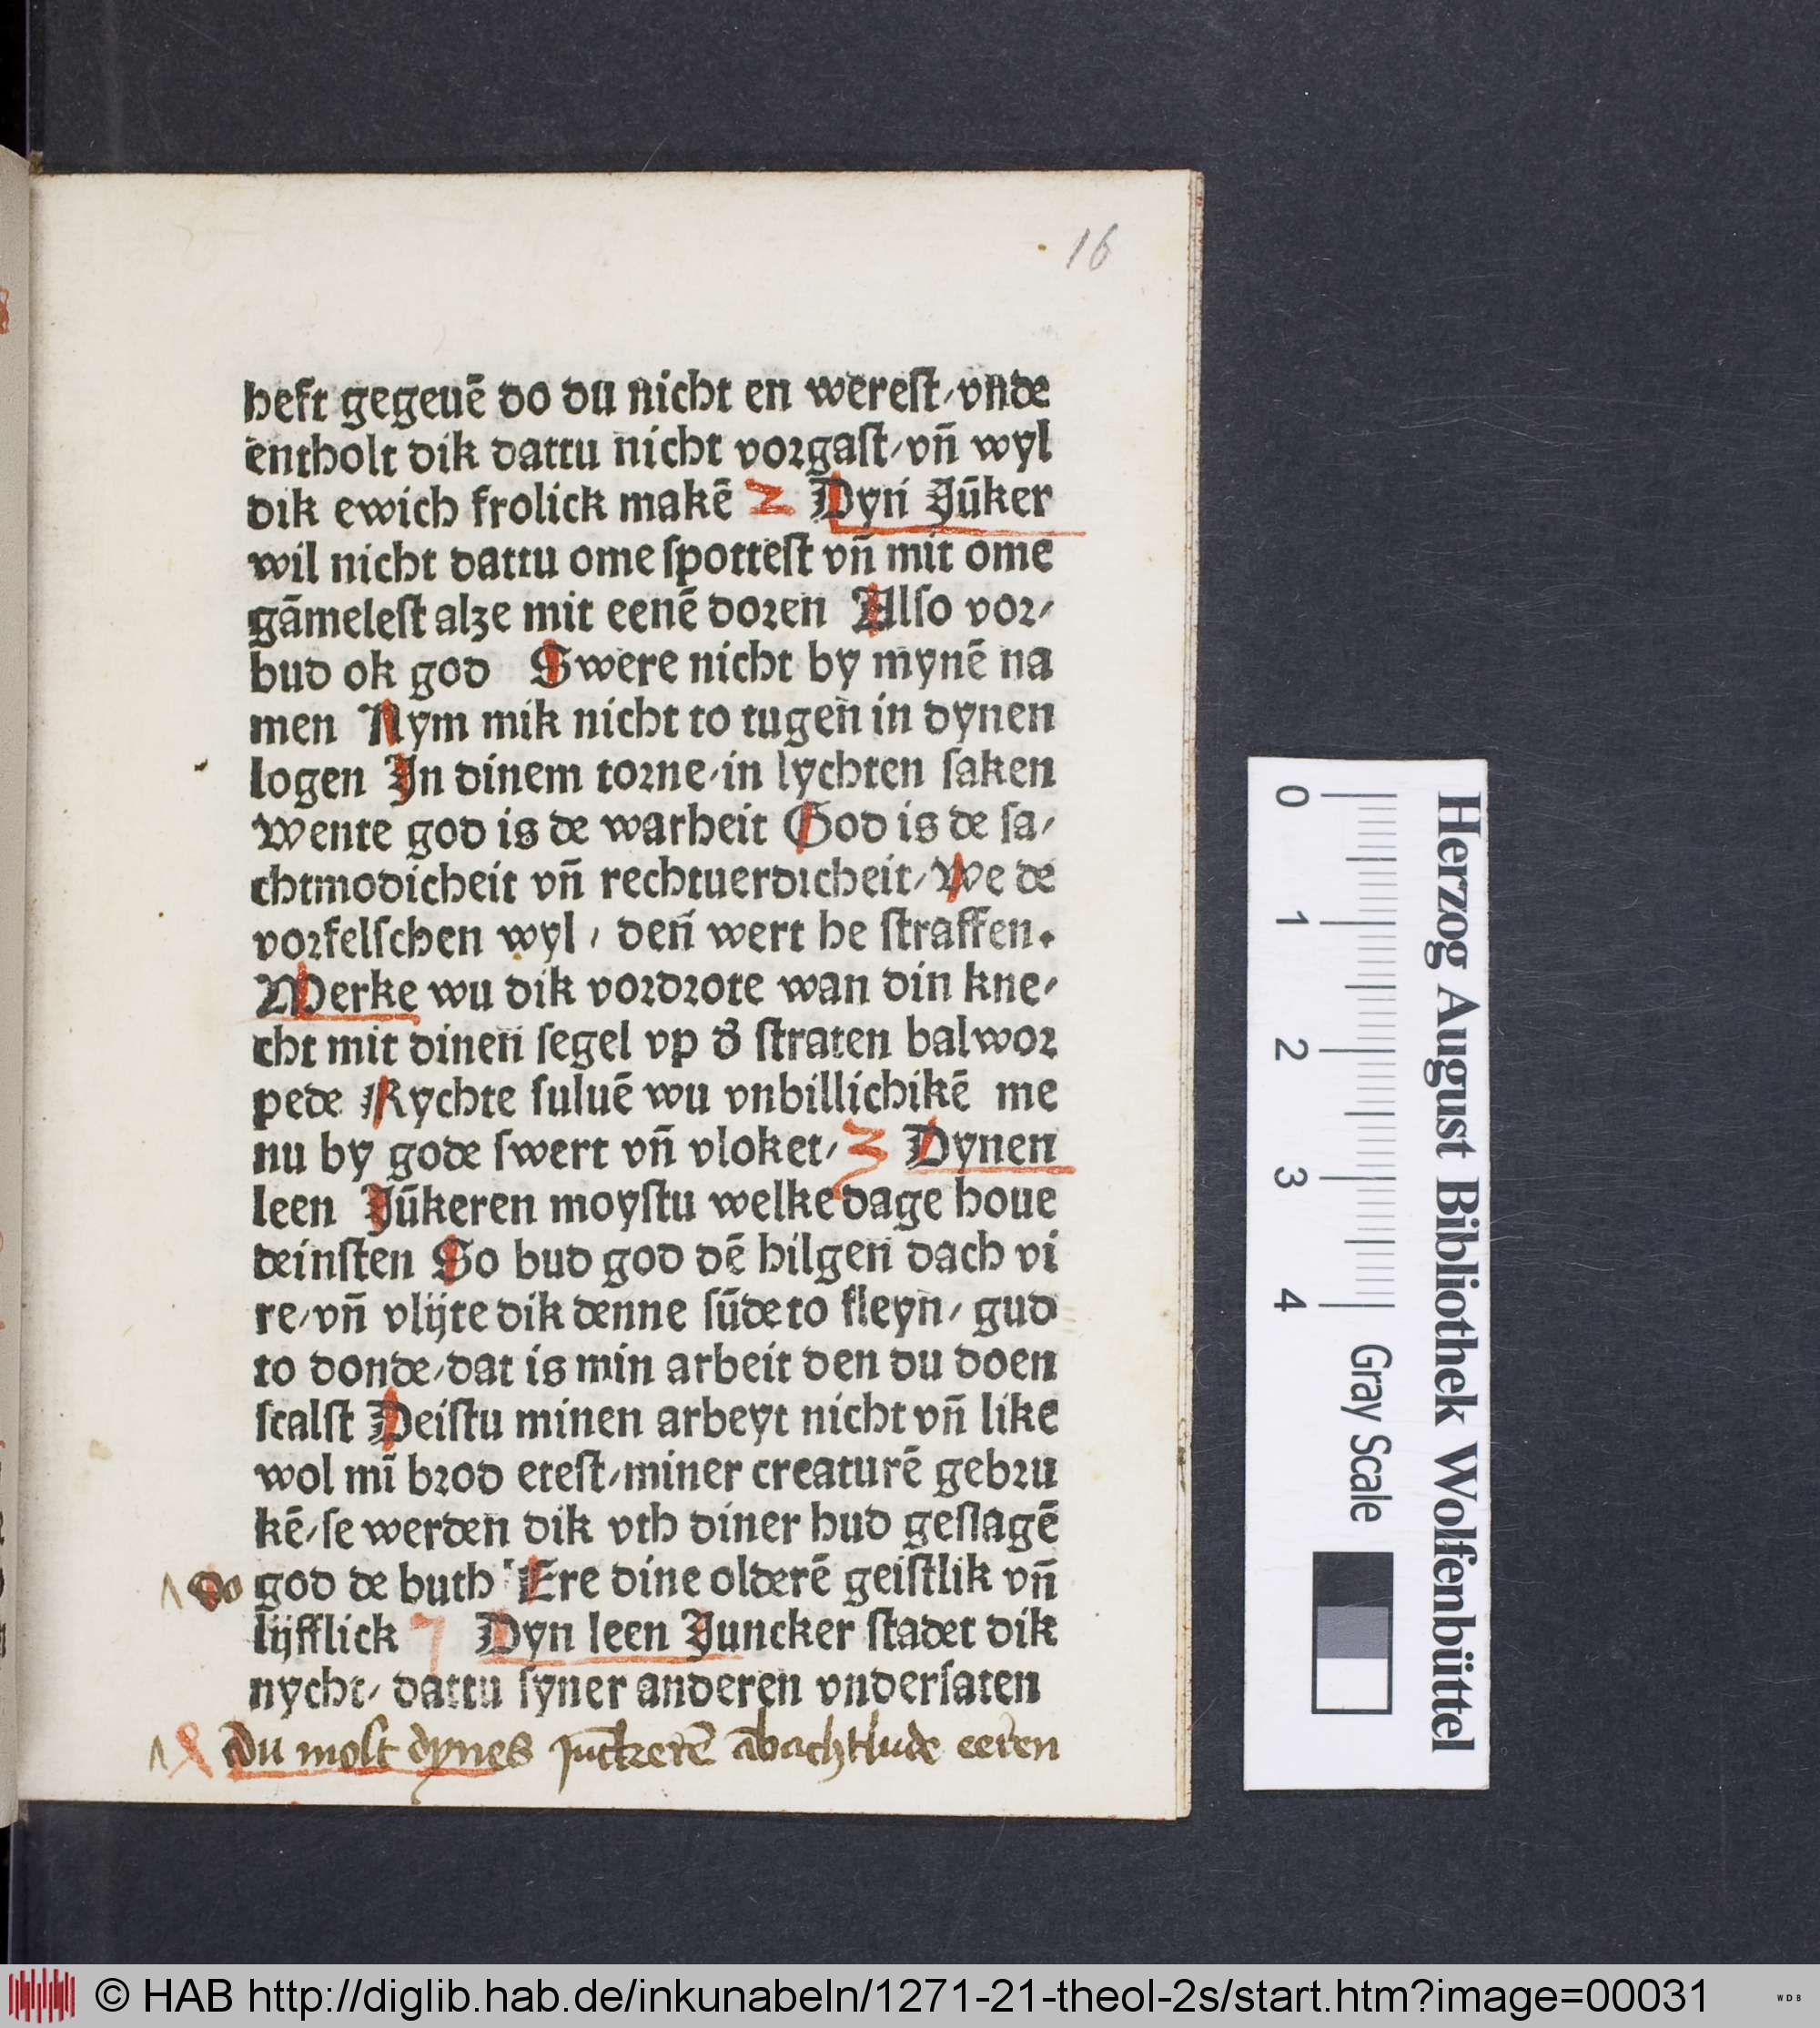 16
heft gegeuē do du nicht en wereſt/vnde
entholt dik dattu nicht vorgaſt/vn̄ wyl
dik ewich frolick makē 2 Dyn Jūker
wil nicht dattu ome ſpotteſt vn̄ mit ome
gāmeleſt alze mit eenē doren Alſo vor/
bud ok god Swere nicht by mynē na
men Nym mik nicht to tugen in dynen
logen In dinem torne/in lychten ſaken
Wente god is de warheit God is de ſa/
chtmodicheit vn̄ rechtuerdicheit/We de
vorfelſchen wyl / den wert he ſtraffen.
Merke wu dik vordrote wan din kne/
cht mit dinen ſegel vp d̕ ſtraten balwor
pede Rychte ſuluē wu vnbillichikē me
nu by gode ſwert vn̄ vloket/ 3 Dynen
leen Jūkeren moyſtu welke dage houe
deinſten So bud god dē hilgen dach vi
re/vn̄ vlijte dik denne ſūde to fleyn/ gud
to donde/dat is min arbeit den du doen
ſcalſt Deiſtu minen arbeyt nicht vn̄ like
wol mī brod eteſt/miner creaturē gebru
kē/ſe werden dik vth diner hud geſlagē
god de buth Ere dine olderē geiſtlik vn̄
lijfflick Dyn leen Juncker ſtadet dik
nycht/ dattu ſyner anderen vnderſaten
du moſt dynes eeren
Herzog August Bibliothek Wolfenbüttel
0 1 2 3 4 Gray Scale
© HAB http://diglib.hab.de/inkunabeln/1271-21-theol-2s/start.htm?image=00031
WDB